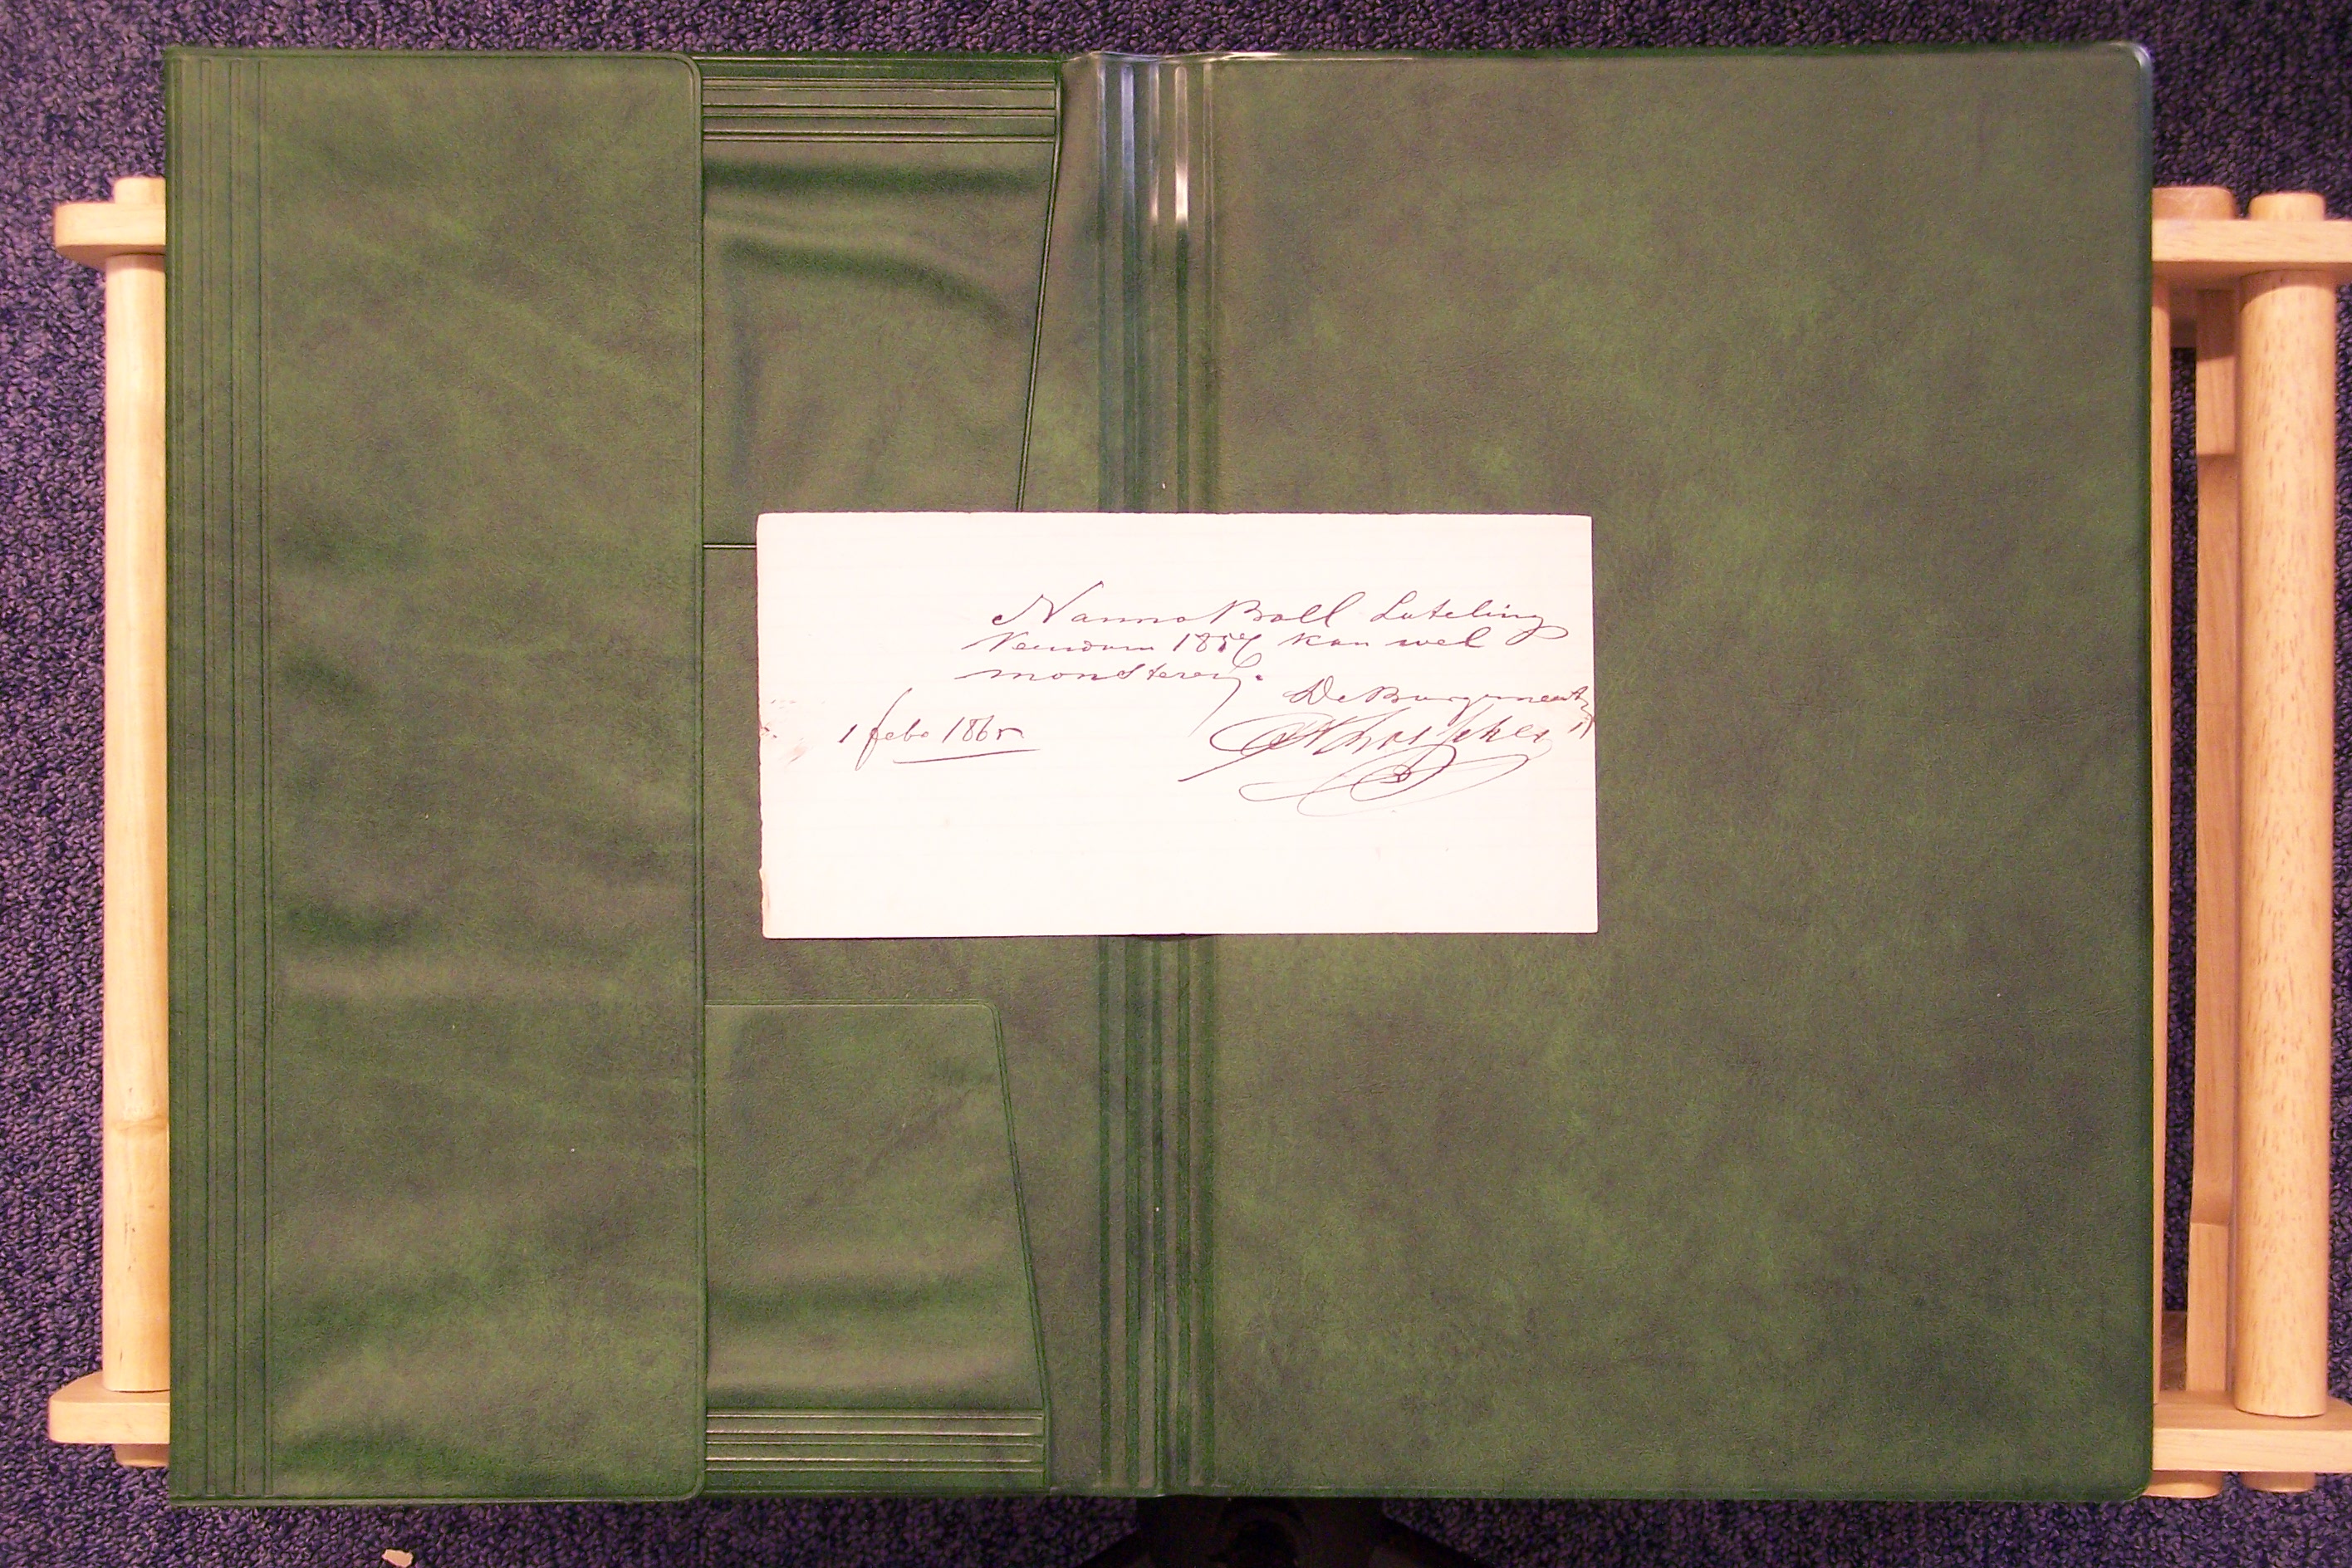 Nanno Boll Loteling
Veendam 1857 kan wel
monsteren.
De Burgemeester
1 febr 1865